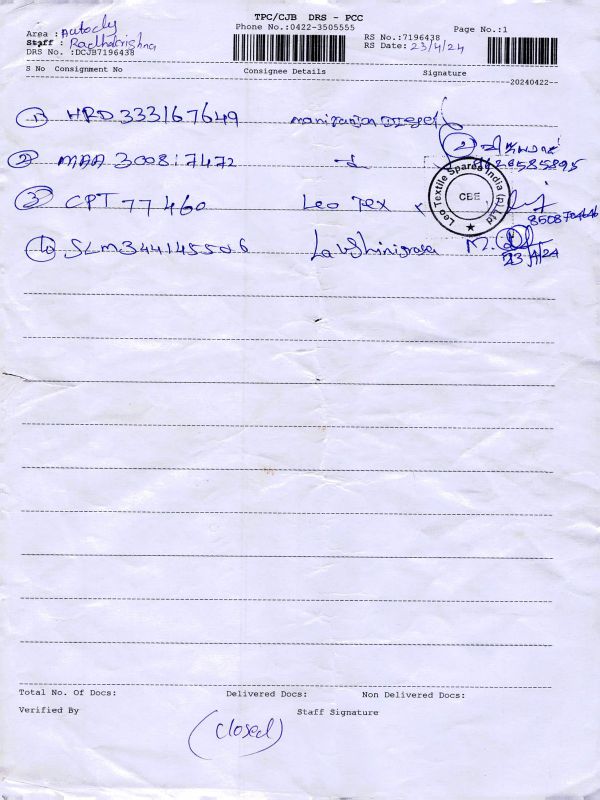 TPC/CJB DRS - PCC
Phone No.:0422-3505555
Page No.:1
Area :
Staff : Radhakrishna
DRS No. :DCJB7196438
RS No.:7196438
RS Date: 23/4/24
S No Consignment No Consignee Details Signature
20240422
1 HRD 333167649
2 MAA 300817472
3 CPT 77460 Leo Tex
8508704646
Leo Textile Spares India (P) Ltd
CBE
SLM 344145506
M.
23/4/24
Total No. Of Docs: Delivered Docs: Non Delivered Docs:
Verified By Staff Signature
(closed)